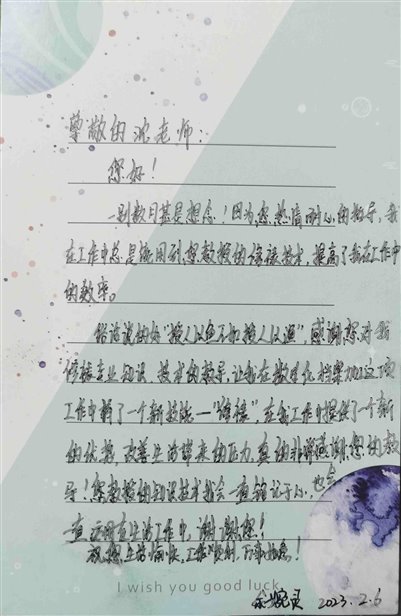 尊敬的沈老师：
您好！
一别数月甚是想念！因为您热情耐心的教导，我
在工作中总是运用到您教授的修接技术，提高了我在工作中
的效率。
俗话说的好“授人以鱼不如授人以渔”，感谢您对我
修接专业知识、技术的教导，让我在数字化档案加工这项
工作中新了一个新技能—“修接”，在我工作中提供了一个新
的优势，改善生活带来的压力，真的非常感谢您的教
导！您教授的知识技术我会一直铭记于心，也会
一直运用在生活工作中，谢谢您！
祝您生活愉快，工作顺利，万事如意！
I wish you good luck
2023.2.6